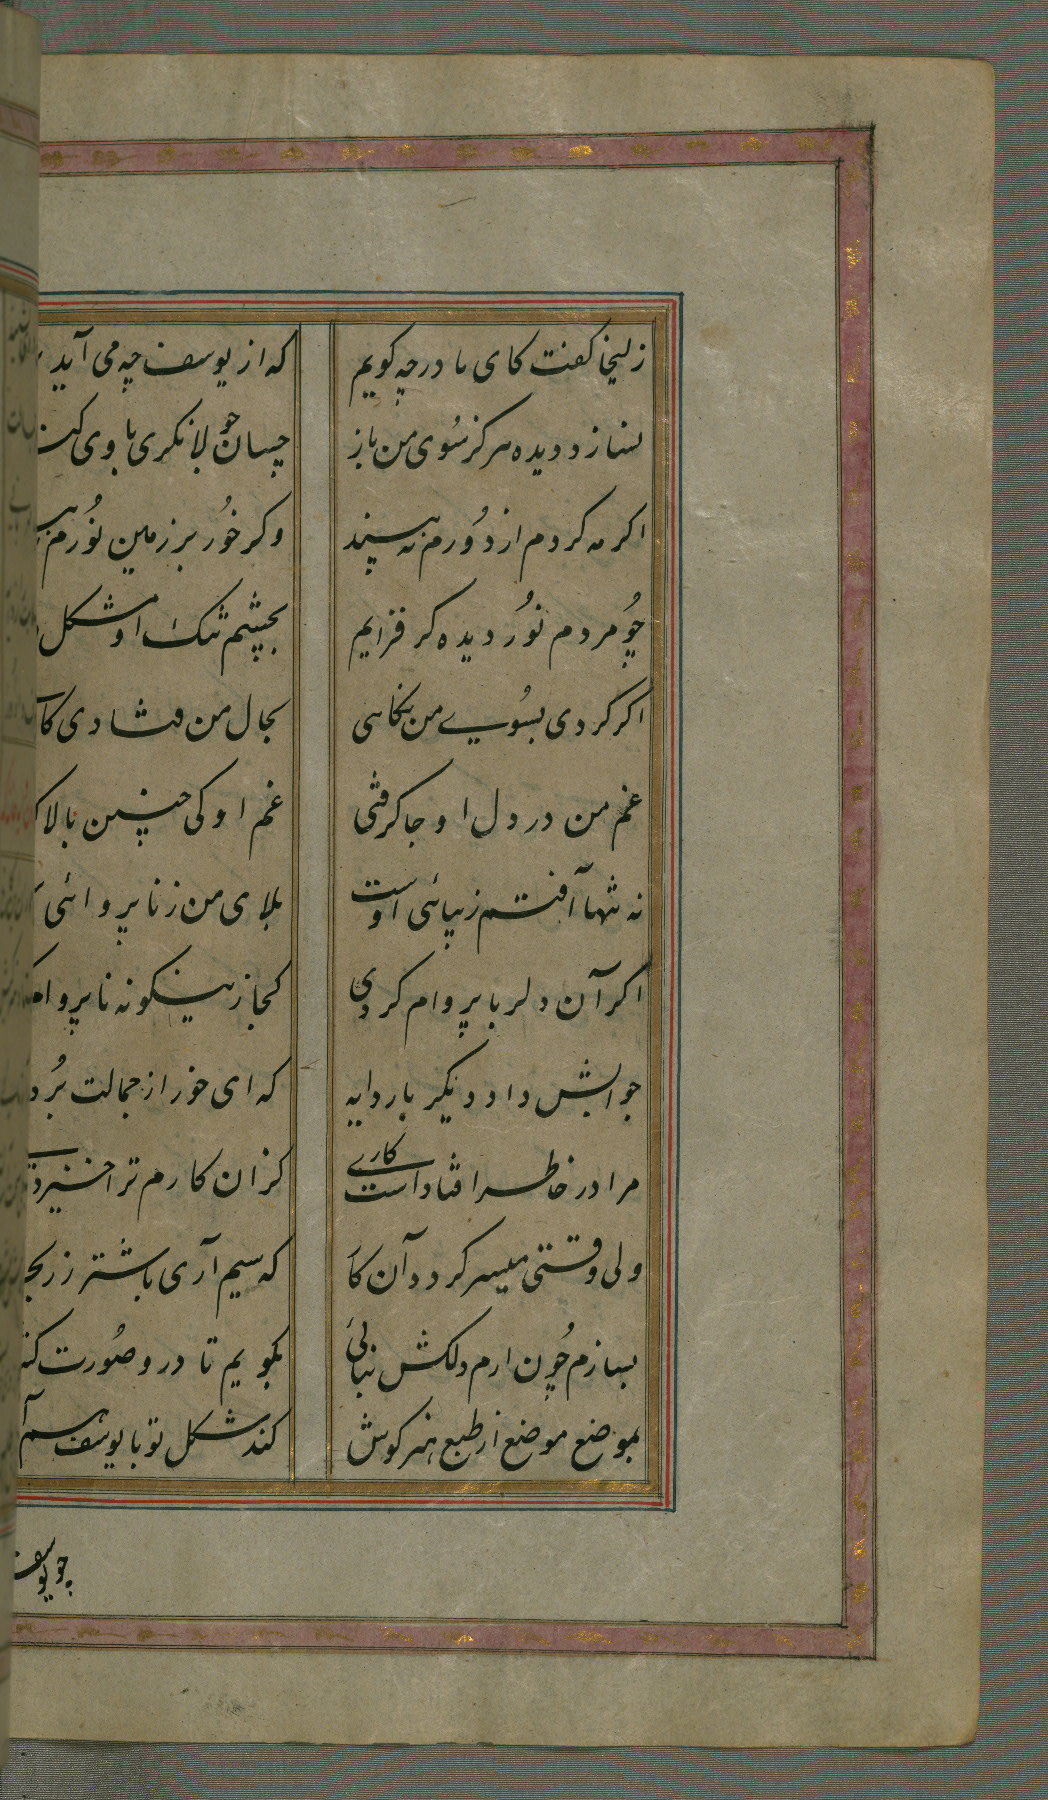 زلیخا کفت کای مادرچه کویم که از یوسف چه می آید
نسازد دیده هرکز سُوی من باز چسان جون لا نکری با وی کنـ
اکر مه کردم از دُورم نه بیند وکر خُور بر زمین نُورم
چُو مردم نُور دیده کر فزایم بچشم تنک او مشکل
اکر کردی بسُویے من نکاهی بحال من فتادی کا
غم من در دل او جا کرفتی غم او کی چنین بالا
نه تنها آفتم زیبائی اوست بلای من زنا پروائی
اکر آن دلربا پروام کردی کجا زینکونه نا پروا
جوابش داد دیکر بار دایه که ای خور از جمالت بُرد
مرا در خاطر افتاداست کارے کزان کارم ترا خیزد
ولی وقتی میسر کردد آن کار که سیم آری باشتر زر بخـ
بسازم چُون ارم دلکش بنائیٔ بکویم تا درو صُورت کنـ
بموضع موضع از طبع هنر کوش کند شکل تو با یوسف هم آ
چو یوسف